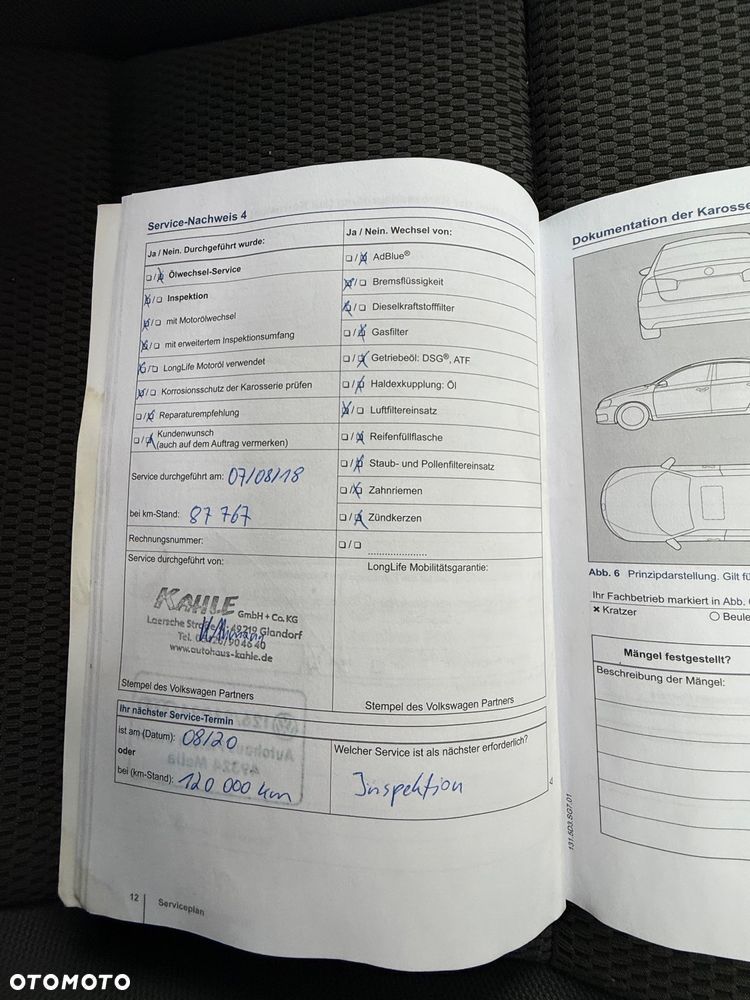 Service-Nachweis 4
Ja / Nein. Durchgeführt wurde:
❑/❑ Ölwechsel-Service
❑/❑ Inspektion
❑/❑ mit Motorölwechsel
❑/❑ mit erweitertem Inspektionsumfang
❑/❑ LongLife Motoröl verwendet
❑/❑ Korrosionsschutz der Karosserie prüfen
❑/❑ Reparaturempfehlung
❑/❑ Kundenwunsch
(auch auf dem Auftrag vermerken)
Service durchgeführt am: 07/08/18
bei km-Stand: 87 767
Rechnungsnummer:
Service durchgeführt von:
KAHLE GmbH + Co. KG
Laersche Straße 49219 Glandorf
Tel. 90 46 40
www.autohaus-kahle.de
Stempel des Volkswagen Partners
Ja / Nein. Wechsel von:
❑/❑ AdBlue®
❑/❑ Bremsflüssigkeit
❑/❑ Dieselkraftstofffilter
❑/❑ Gasfilter
❑/❑ Getriebeöl: DSG®, ATF
❑/❑ Haldexkupplung: Öl
❑/❑ Luftfiltereinsatz
❑/❑ Reifenfüllflasche
❑/❑ Staub- und Pollenfiltereinsatz
❑/❑ Zahnriemen
❑/❑ Zündkerzen
❑/❑ .....................
LongLife Mobilitätsgarantie:
Stempel des Volkswagen Partners
Ihr nächster Service-Termin
ist am (Datum): 08/20
oder
bei (km-Stand): 120 000 km
Welcher Service ist als nächster erforderlich?
Inspektion
12
Serviceplan
Dokumentation der Karosse
Abb. 6 Prinzipdarstellung. Gilt fü
Ihr Fachbetrieb markiert in Abb. 6
× Kratzer
○ Beule
Mängel festgestellt?
Beschreibung der Mängel:
131.5D3.SG7.01
OTOMOTO